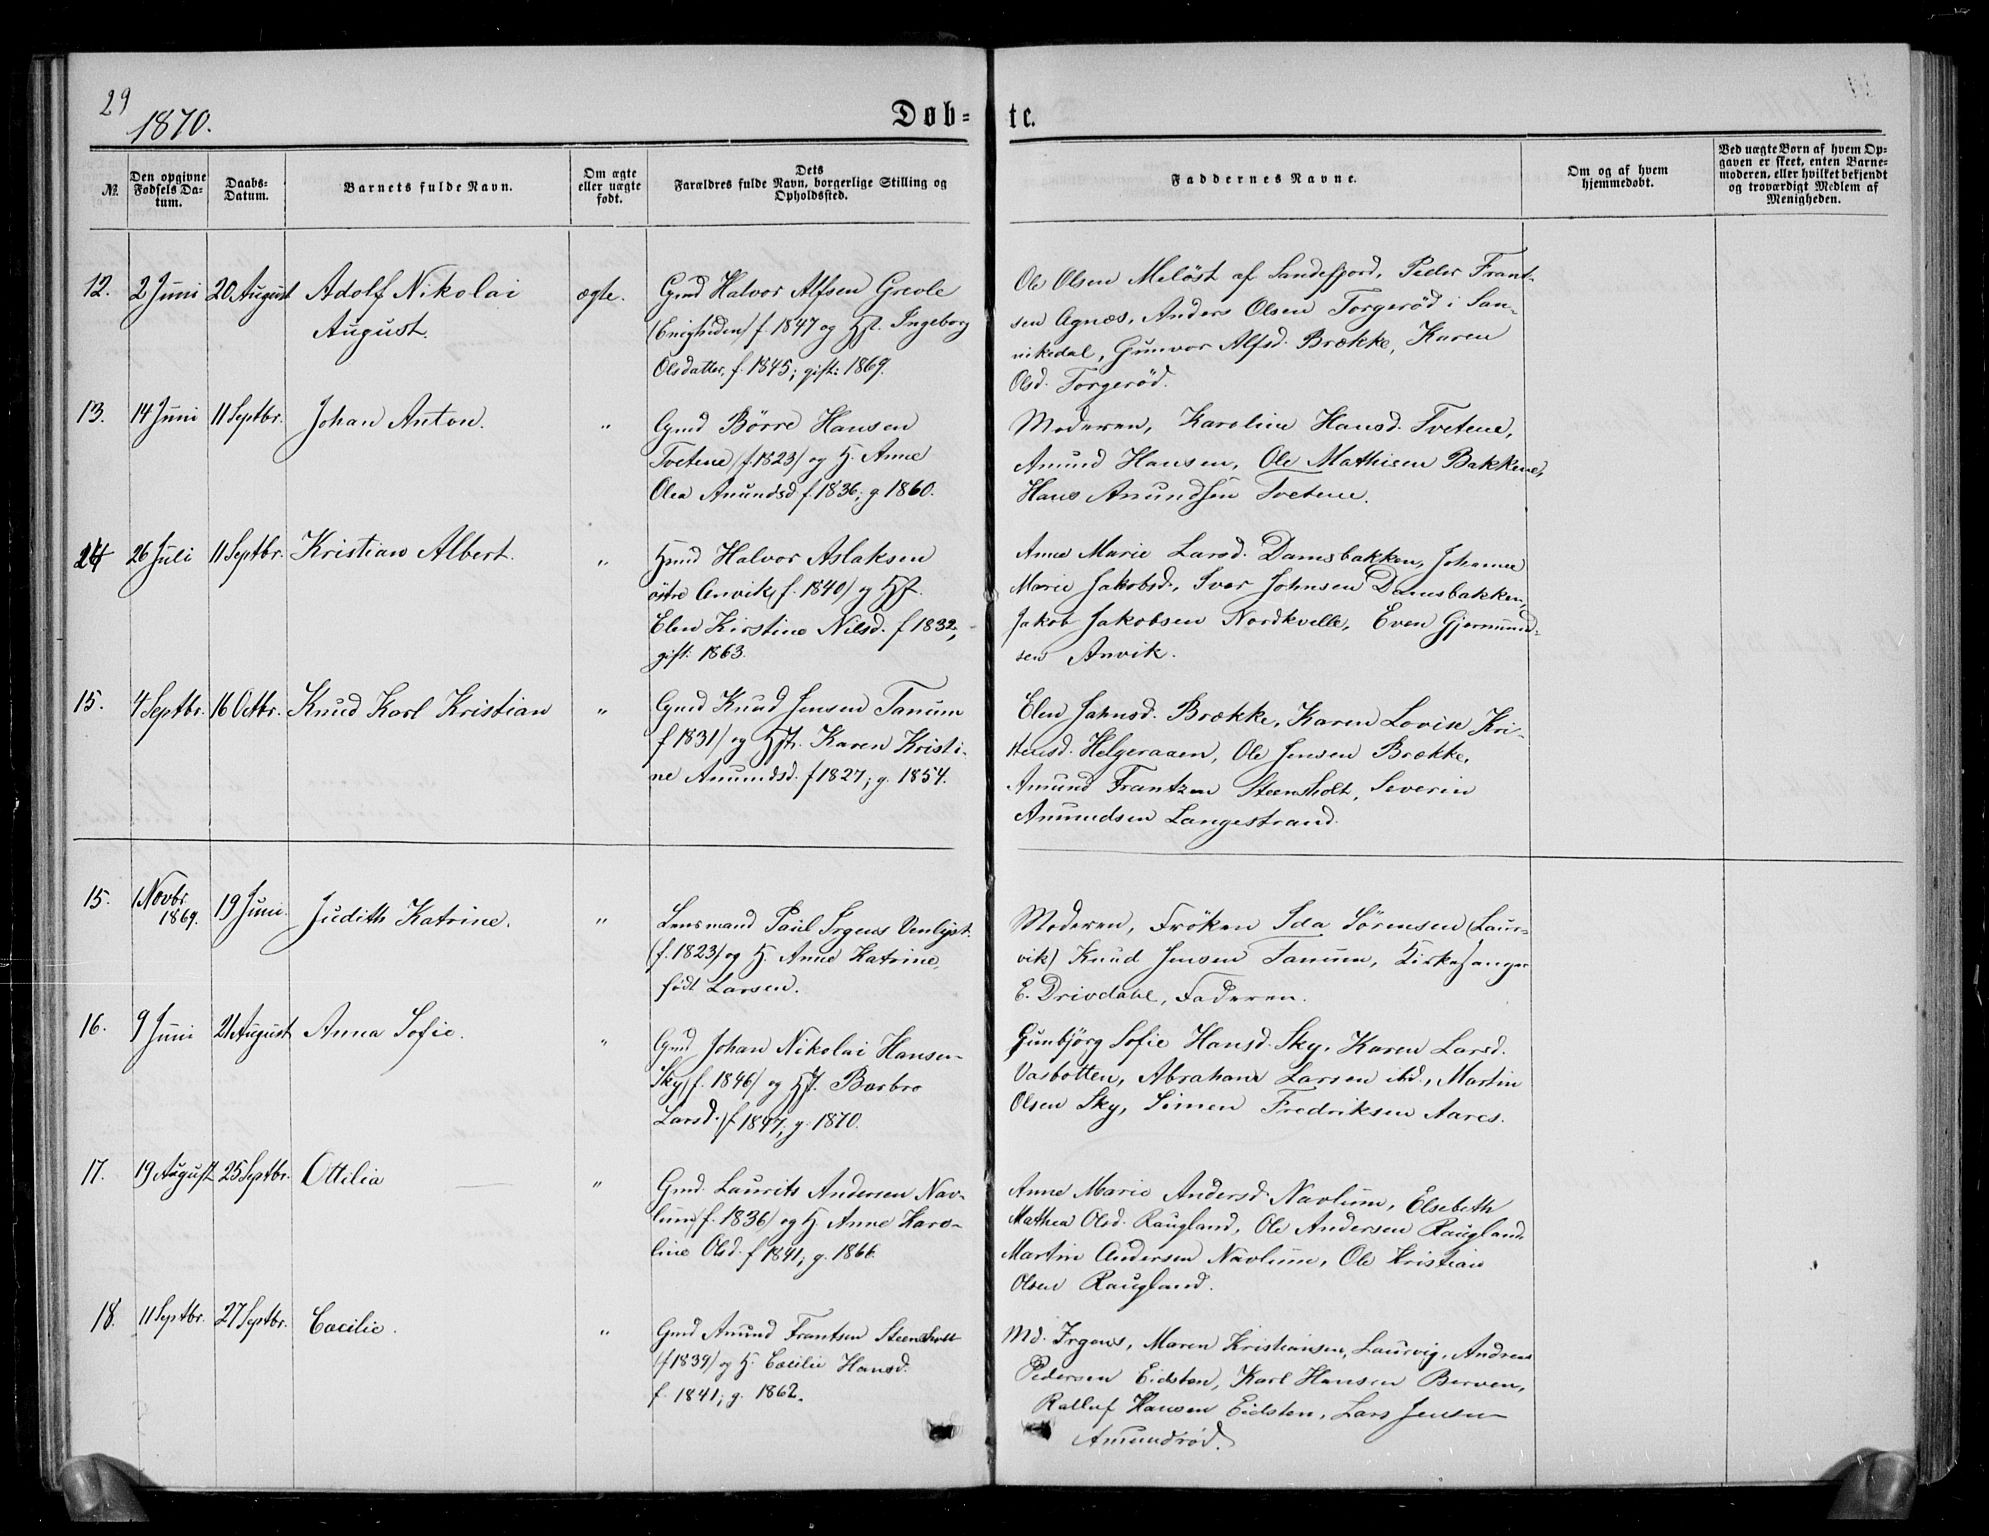 29
1870.
Døb-
te.
№.
Den opgivne Fødsels Da-tum.
Daabs-Datum.
Barnets fulde Navn.
Om ægte eller uægte født.
Dets Forældres fulde Navn, borgerlige Stilling og Opholdssted.
Faddernes Navne.
Om og af hvem hjemmedøbt.
Ved uægte Børn af hvem Op-gaven er skeet, enten Barne-moderen, eller hvilket bekjendt og troværdigt Medlem af Menigheden.
12. 2 Juni 20 August Adolf Nikolai
August.
ægte.
Gmd Halvor Alfsen Grevle
(Enigheden) f. 1847 og Hst. Ingeborg
Olsdatter, f. 1845; gift: 1869.
Ole Olsen Meløst af Sandefjord, Peder Frant-
sen Agnæs, Anders Olsen Torgerød i San-
vikedal, Gunvor Alfsd. Brække, Karen
Olsd. Torgerød.
13. 14 Juni 11 Septbr. Johan Anton.
"
Gmd Børre Hansen
Tvetene (f. 1823) og H. Anne
Olea Anundsd f. 1836; g. 1860.
Moderen, Karoline Hansd. Tvetene,
Amund Hansen, Ole Mathisen Bakkene,
Hans Anundsen Tvetene.
14 26 Juli 11 Septbr. Kristian Albert.
"
Hmd Halvor Aslaksen
østre Anvik (f. 1840) og Hst.
Elen Kirstine Nilsd. f 1832;
gift: 1863.
Anne Marie Larsd. Damsbakken, Johanne
Marie Jakobsd., Ivar Johnsen Damsbakken,
Jakob Jakobsen Nordkvelle, Even Gjermund-
sen Anvik.
15. 4 Septbr. 16 Octbr. Knud Karl Kristian
"
Gmd Knud Jensen Tanum
f 1831) og Hst. Karen Kristi-
ne Anundsd. f 1827; g. 1854.
Elen Jahnsd. Brække, Karen Lovise Kri-
stensd. Helgeraaen, Ole Jensen Brække,
Amund Frantzen Steensholt, Severin
Anundsen Langestrand.
15. 1 Novbr. 1869. 19 Juni. Judith Katrine.
"
Lensmand Paul Irgens Venlyst.
(f. 1823) og H. Anne Katrine,
født Larsen.
Moderen, Frøken Ida Sørensen (Laur-
vik) Knud Jensen Tanum, Kirkesanger
E. Drivdahl, Faderen.
16. 9 Juni 21 August Anna Sofie.
"
Gmd Johan Nikolai Hansen
Sky (f. 1846) og Hst. Barbro
Larsd. f 1847; g. 1870.
Gunbjørg Sofie Hansd. Sky, Karen Larsd.
Vasbotten, Abraham Larsen ibd., Martin
Olsen Sky, Simen Fredriksen Aares.
17. 19 August 25 Septbr. Ottilia
"
Gmd. Laurits Andersen Nav-
lum (f. 1836) og H. Anne Karo-
line Olsd. f 1841; g. 1866.
Anne Marie Andersd. Navlum, Elsebeth
Mathea Olsd. Raugland, Ole Andersen Raugland
Martin Andersen Navlum, Ole Kristian
Olsen Raugland.
18. 11 Septbr. 27 Septbr. Cæcilie.
"
Gmd Anund Frantsen Steensholt
(f 1839) og H. Cæcilie Hansd.
f. 1841; g. 1862.
Md. Irgens, Maren Kristiansen, Laurvig, Andreas
Pedersen Eidsten, Karl Hansen Berven,
Rolluf Hansen Eidsten, Lars Jensen
Amundrød.